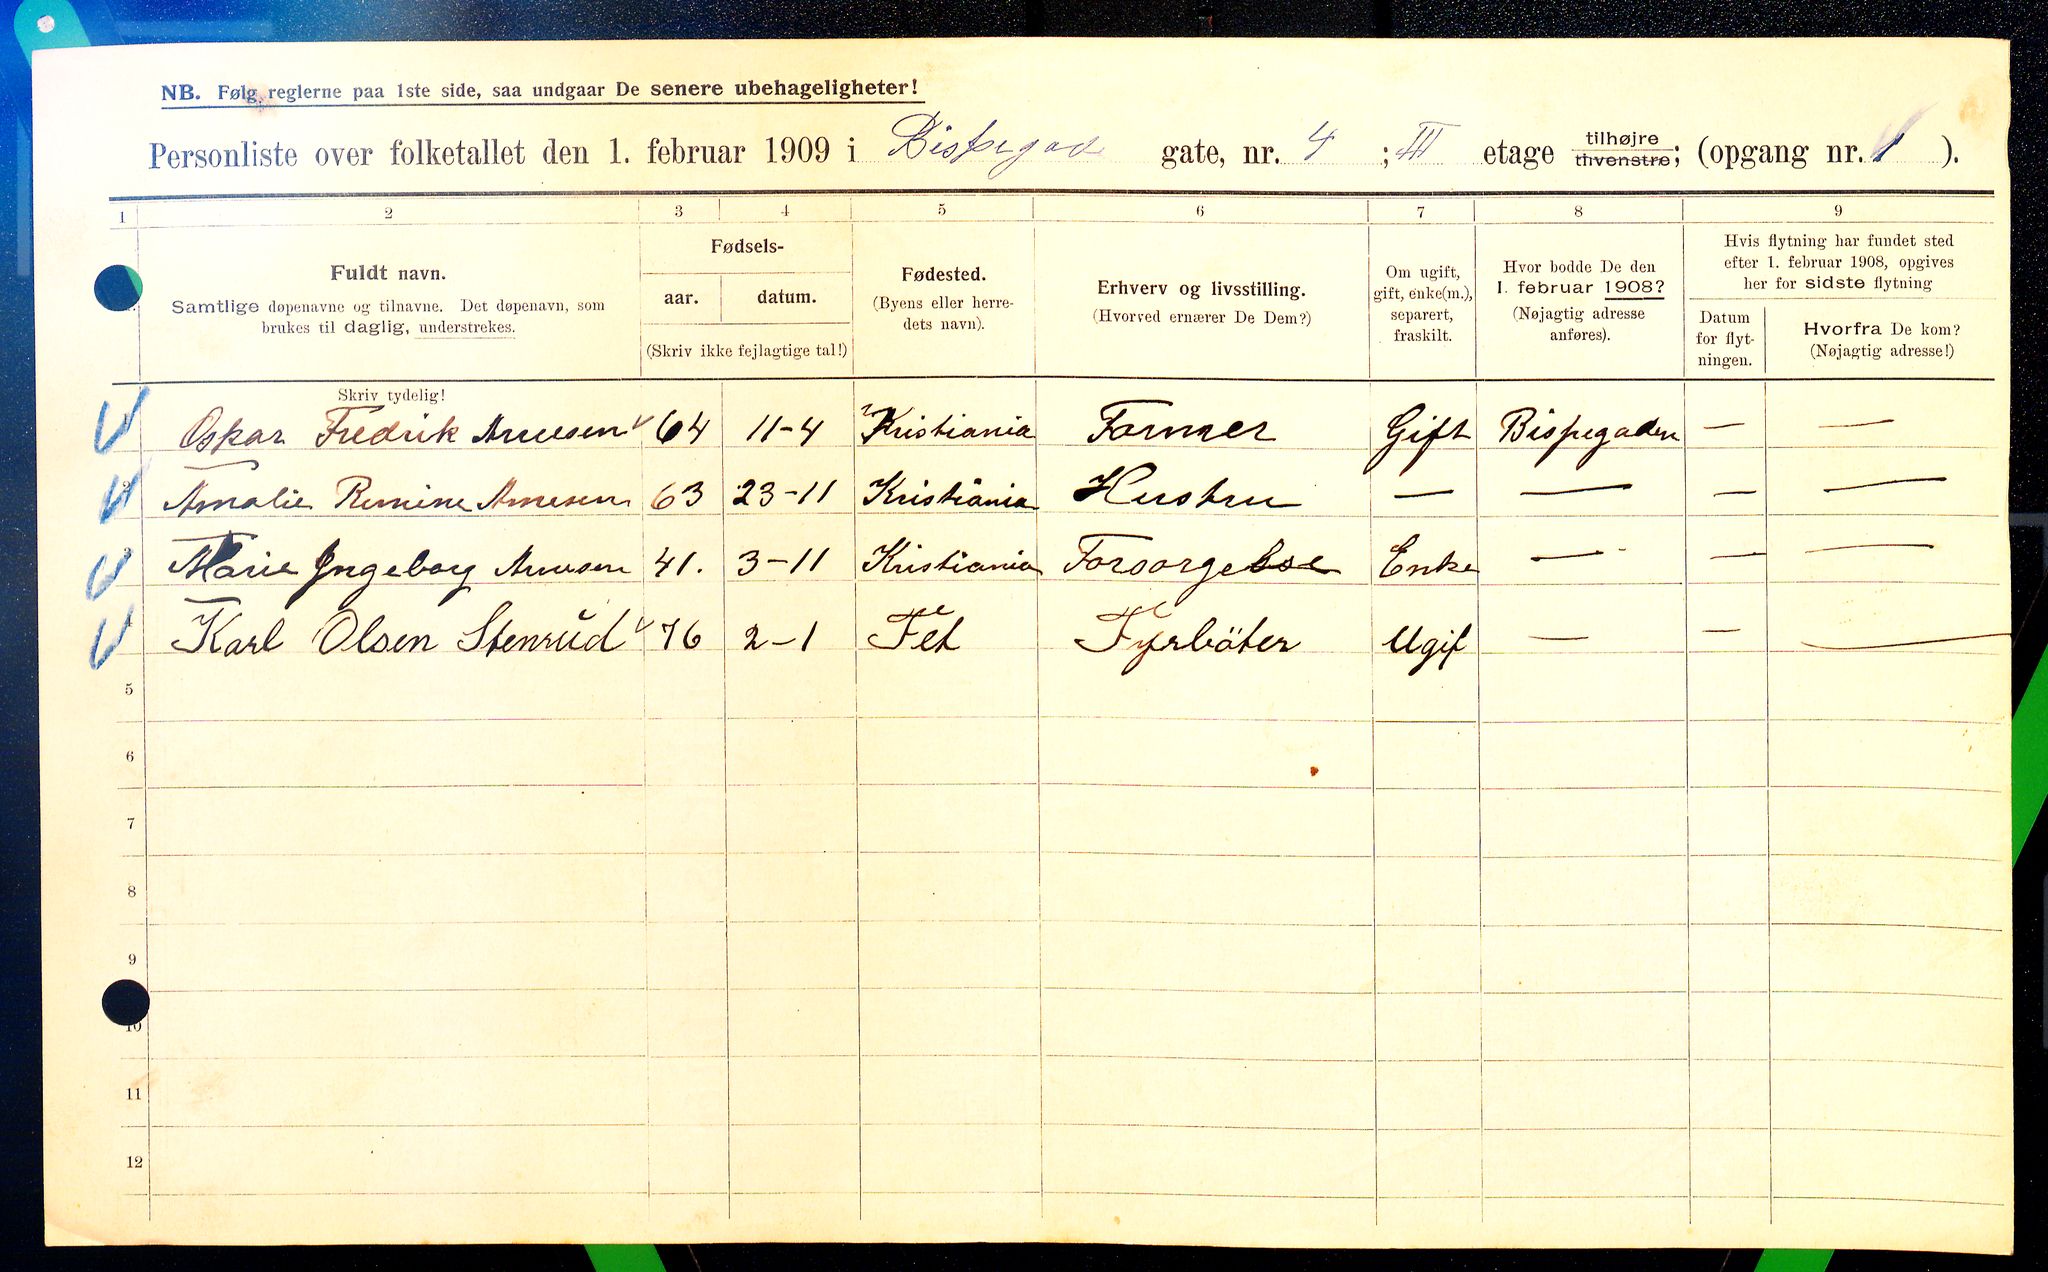 NB. Følg reglerne paa 1ste side, saa undgaar De senere ubehageligheter!
Personliste over folketallet den 1. februar 1909 i Bispegad gate, nr. 4 ; III etage tilhøjre tilvenstre; (opgang nr. 1 ).
1 2 3 4 5 6 7 8 9
Fuldt navn.
Samtlige døpenavne og tilnavne. Det døpenavn, som
brukes til daglig, understrekes.
Fødsels-
aar. datum.
(Skriv ikke fejlagtige tal!)
Fødested.
(Byens eller herre-
dets navn).
Erhverv og livsstilling.
(Hvorved ernærer De Dem?)
Om ugift,
gift, enke(m.),
separert,
fraskilt.
Hvor bodde De den
1. februar 1908?
(Nøjagtig adresse
anføres).
Hvis flytning har fundet sted
efter 1. februar 1908, opgives
her for sidste flytning
Datum
for flyt-
ningen.
Hvorfra De kom?
(Nøjagtig adresse!)
Skriv tydelig!
Oskar Fredrik Arnesen 64 11-4 Kristiania Former Gift Bispegaden — —
2 Amalie Arnesen 63 23-11 Kristiania Hustru — — — —
3 Marie Ingeborg Arnesen 41. 3-11 Kristiania Forsørgelse Enke — — —
4 Karl Olsen Stenrud 76 2-1 Fet Fyrböter Ugif — — —
5
6
7
8
9
10
11
12